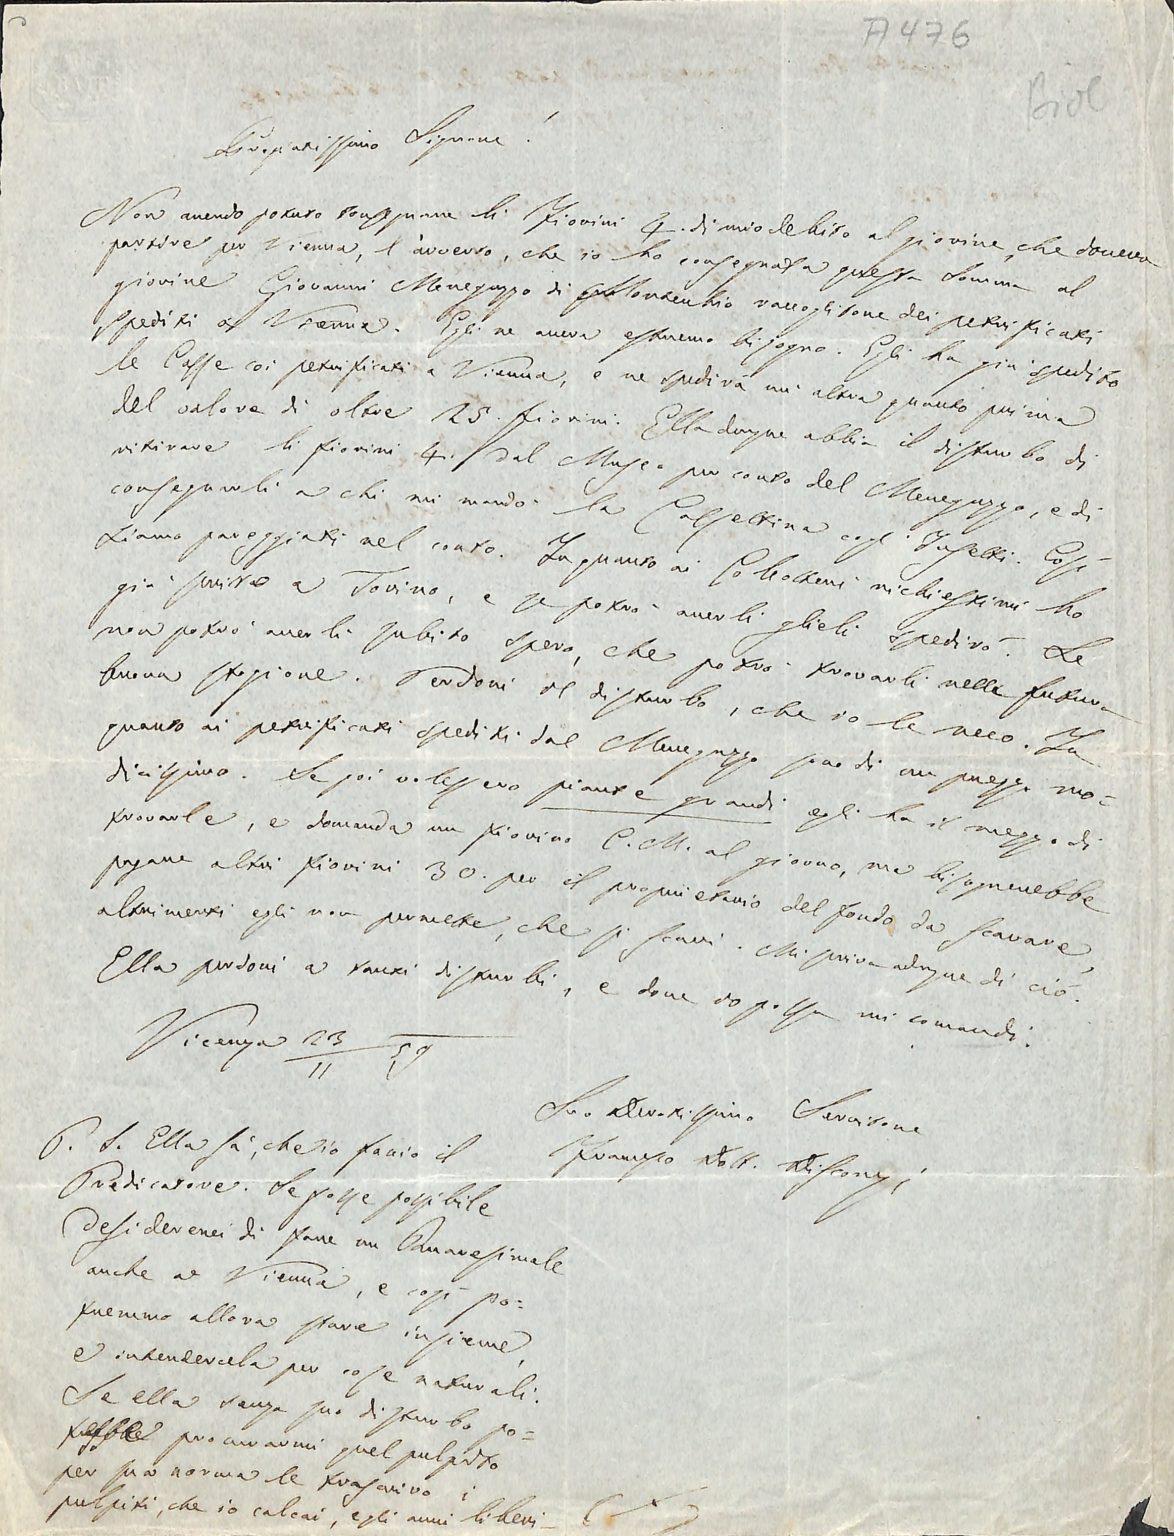 A 476
Biol
Pregiatissimo Signore!
Non avendo potuto consegnare li Fiorini 4. di mio debito al giovine, che doveva
partire per Vienna, l'avverto, che io ho consegnata questa somma al
giovine Giovanni Meneguzzo di Montecchio raccoglitore dei petrificati
spediti a Vienna. Egli ne aveva estremo bisogno. Egli ha già spedito
le Casse coi petrificati a Vienna, e ne spedirà un altra quanto prima
del valore di oltre 25. fiorini. Ella dunque abbia il disturbo di
ritirare li fiorini 4. dal Museo per conto del Meneguzzo, e di
consegnarli a chi mi mandò la Cassettina cogl'Insetti. Così
siamo pareggiati nel conto. In quanto ai Coleotteri richiestimi ho
già scritto a Torino, e se potrò averli glieli spedirò. Se
non potrò averli subito spero, che potrò trovarli nella futura
buona stagione. Perdoni il disturbo, che io le reco. In
quanto ai petrificati spediti dal Meneguzzo sono di un prezzo mo=
dicissimo. Se poi volessero piante grandi egli ha il mezzo di
trovarle, e domanda un fiorino C. M. al giorno, ma bisognerebbe
pagare altri fiorini 30. per il proprietario del fondo da scavare,
altrimenti egli non permette, che si scavi. Mi scriva adunque di ciò.
Ella perdoni a tanti disturbi, e dove io possa mi comandi.
Vicenza 23/11 59
Suo Devotissimo Servitore
Francesco Dott. Disconzi
P. S. Ella sà, che io faccio il
Predicatore. Se fosse possibile
desidererei di fare un Quaresimale
anche a Vienna, e così po=
tremmo allora stare insieme,
e intendercela per cose naturali.
Se ella senza suo disturbo po=
tesse procurarmi quel pulpito
per sua norma le trascrivo i
pulpiti, che io calcai, egli anni liberi